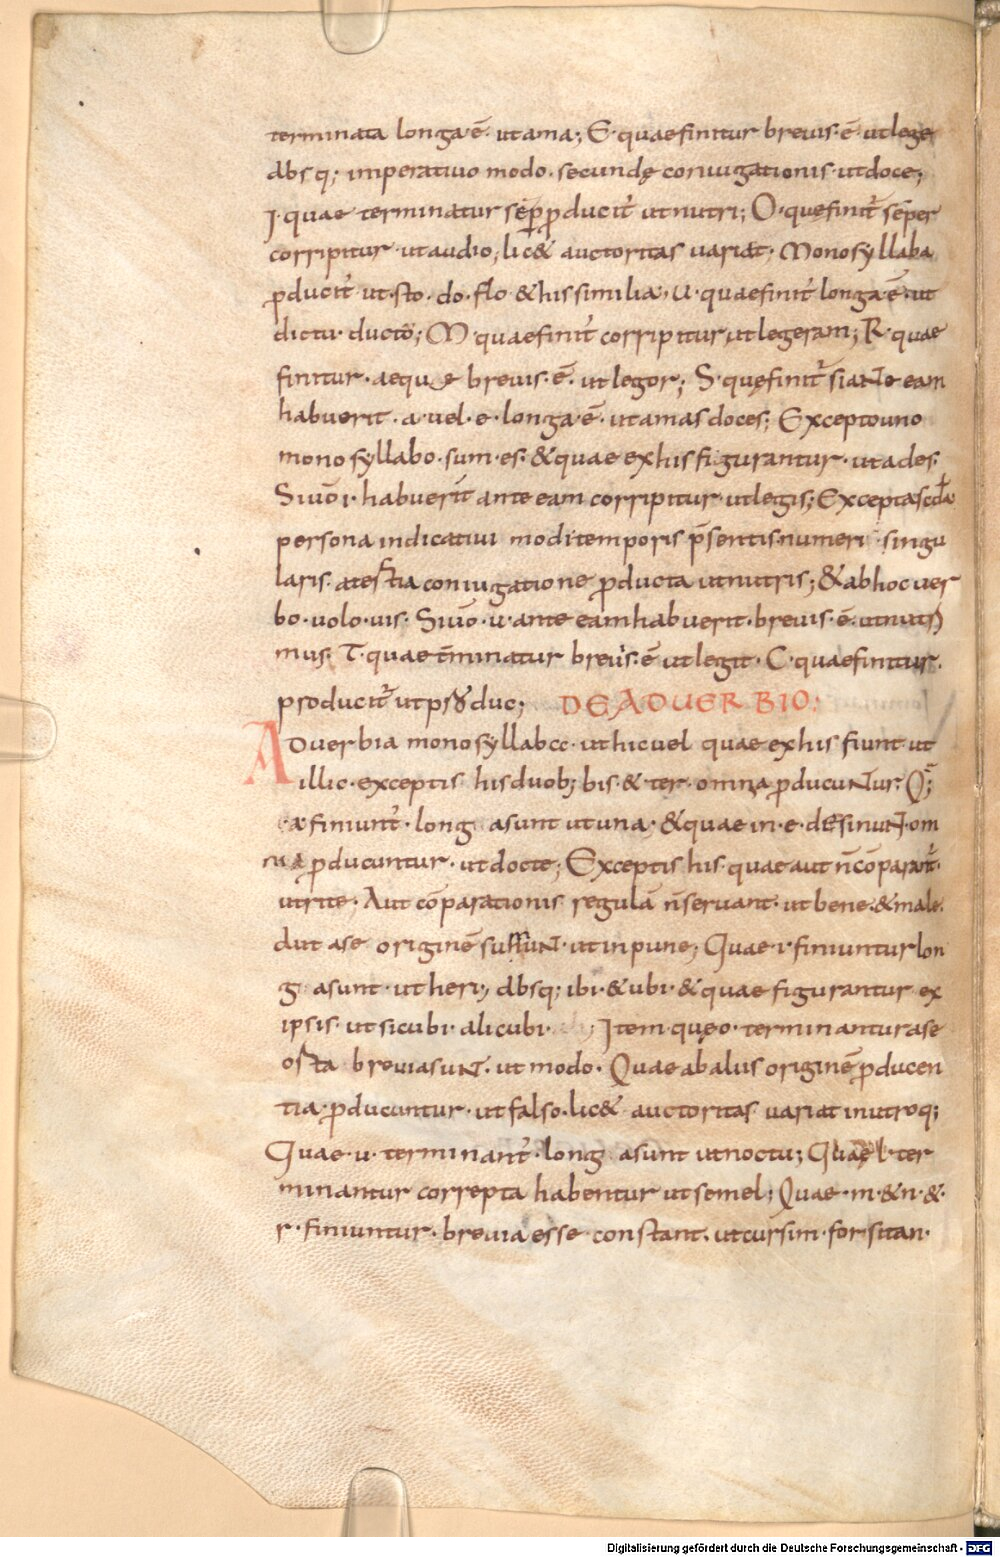 terminata longa ē. ut ama; E. quae finitur brevis. ē. ut lege
absq; imperativo modo. secundę coniugationis. ut doce;
I. quae terminatur sēp̄ ꝓducit̄ ut nutri; O. quę finit̄ sēper
corripitur. ut audio; lic& auctoritas variat; Monosyllaba
ꝓducit̄ ut. sto. do. flo & his similia. U. quae finit̄ longa ē. ut
dictu. ductu; M. quae finit̄ corripitur ut legeram; R. quae
finitur. aequ e brevis. ē. ut legor; S. quę finit̄ si ante eam
habuerit. a. vel. e. longa ē. ut amas doces; Excepto uno
monosyllabo. sum. es. & quae ex his figurantur. ut ades.
Si ū i. habuerit ante eam corripitur. ut legis; Excepta scd̄a
persona indicativi modi temporis p̄sentis numeri singu
laris. a tertia coniugatione ꝓducta ut nutris; & ab hoc ver
bo. volo. vis. Si ū. u. ante eam habuerit. brevis. ē. ut nutri
mus. T. quae t̄minatur brevis. ē ut legit. C. quae finitur.
producit̄ ut duc; DE ADUERBIO;
Aduerbia monosyllaba. ut hic vel quae ex his fiunt ut
illic. exceptis his duob; bis. & ter. omnia ꝓducuntur. Q;
a finiunt̄. long asunt ut una. & quae in. e. desinunt. om
nia ꝓducuntur. ut docte; Exceptis his. quae aut n̄ cōparant̄.
ut rite. Aut cōparationis regulā n̄ servant. ut bene. & male.
aut a se originē sumunt. ut inpune; Quae. i. finiuntur lon
g asunt. ut heri; absq; ibi. & ubi. & quae figurantur ex
ipsis. ut sicubi. alicubi. ; Item. quę o. terminantur a se
osta brevia sunt. ut modo. Quae ab aliis originē ꝓducen
tia. ꝓducuntur. ut falso. lic& auctoritas variat in utroq;
Quae. u. terminant̄. long asunt ut noctu; Quae l. ter
minantur correpta habentur ut semel; Quae. m. & n. &.
r. finiuntur. brevia esse constant. ut cursim. forsitan.
Digitalisierung gefördert durch die Deutsche Forschungsgemeinschaft - DFG